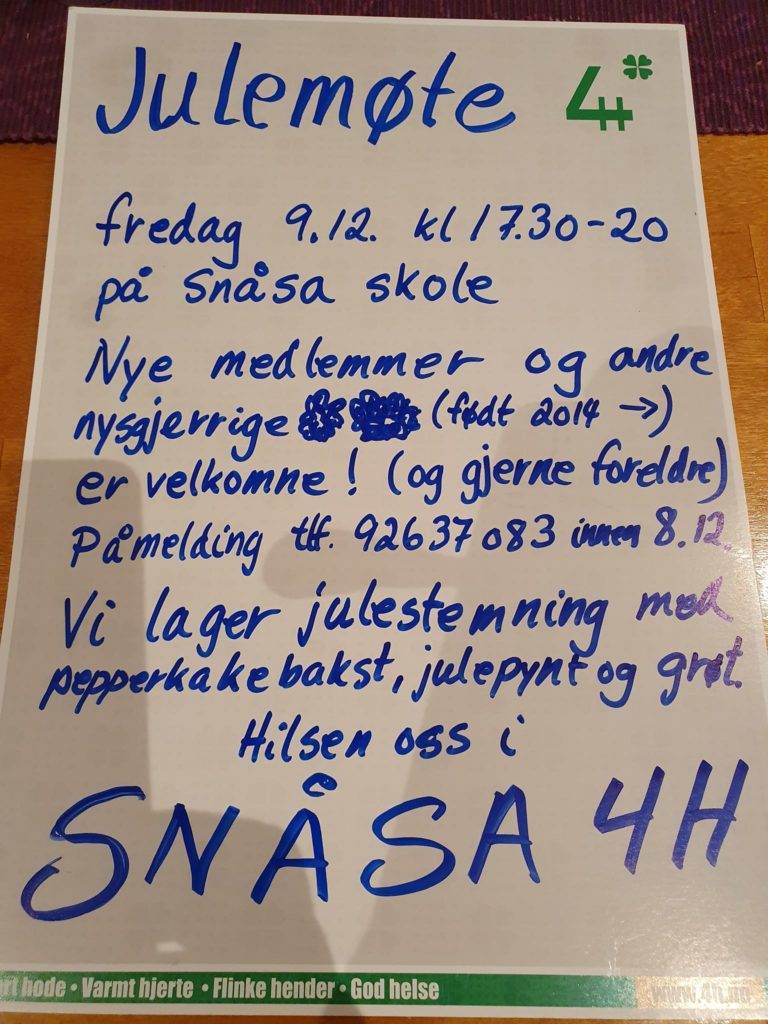 Julemøte 4H
fredag 9.12. kl 17.30-20
på Snåsa skole
Nye medlemmer og andre
nysgjerrige (født 2014 →)
er velkomne! (og gjerne foreldre)
Påmelding tlf. 92637083 innen 8.12.
Vi lager julestemning med
pepperkakebakst, julepynt og grøt.
Hilsen oss i
SNÅSA 4H
hode • Varmt hjerte • Flinke hender • God helse
www.4h.no